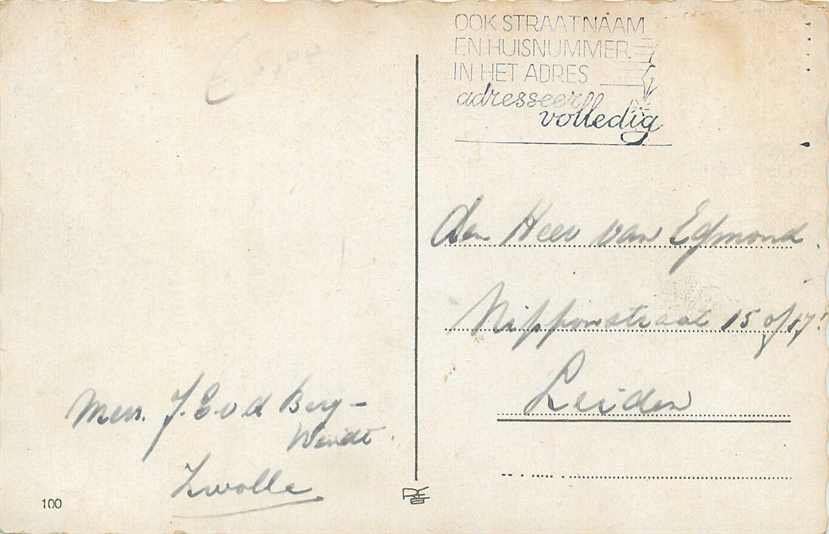 OOK STRAATNAAM
EN HUISNUMMER
IN HET ADRES
adresseer
volledig
den Heer van Egmond.
Nipponstraat 15 of 17!
Leiden
Mevr. J. E v d Berg -
Wendt.
Zwolle
100